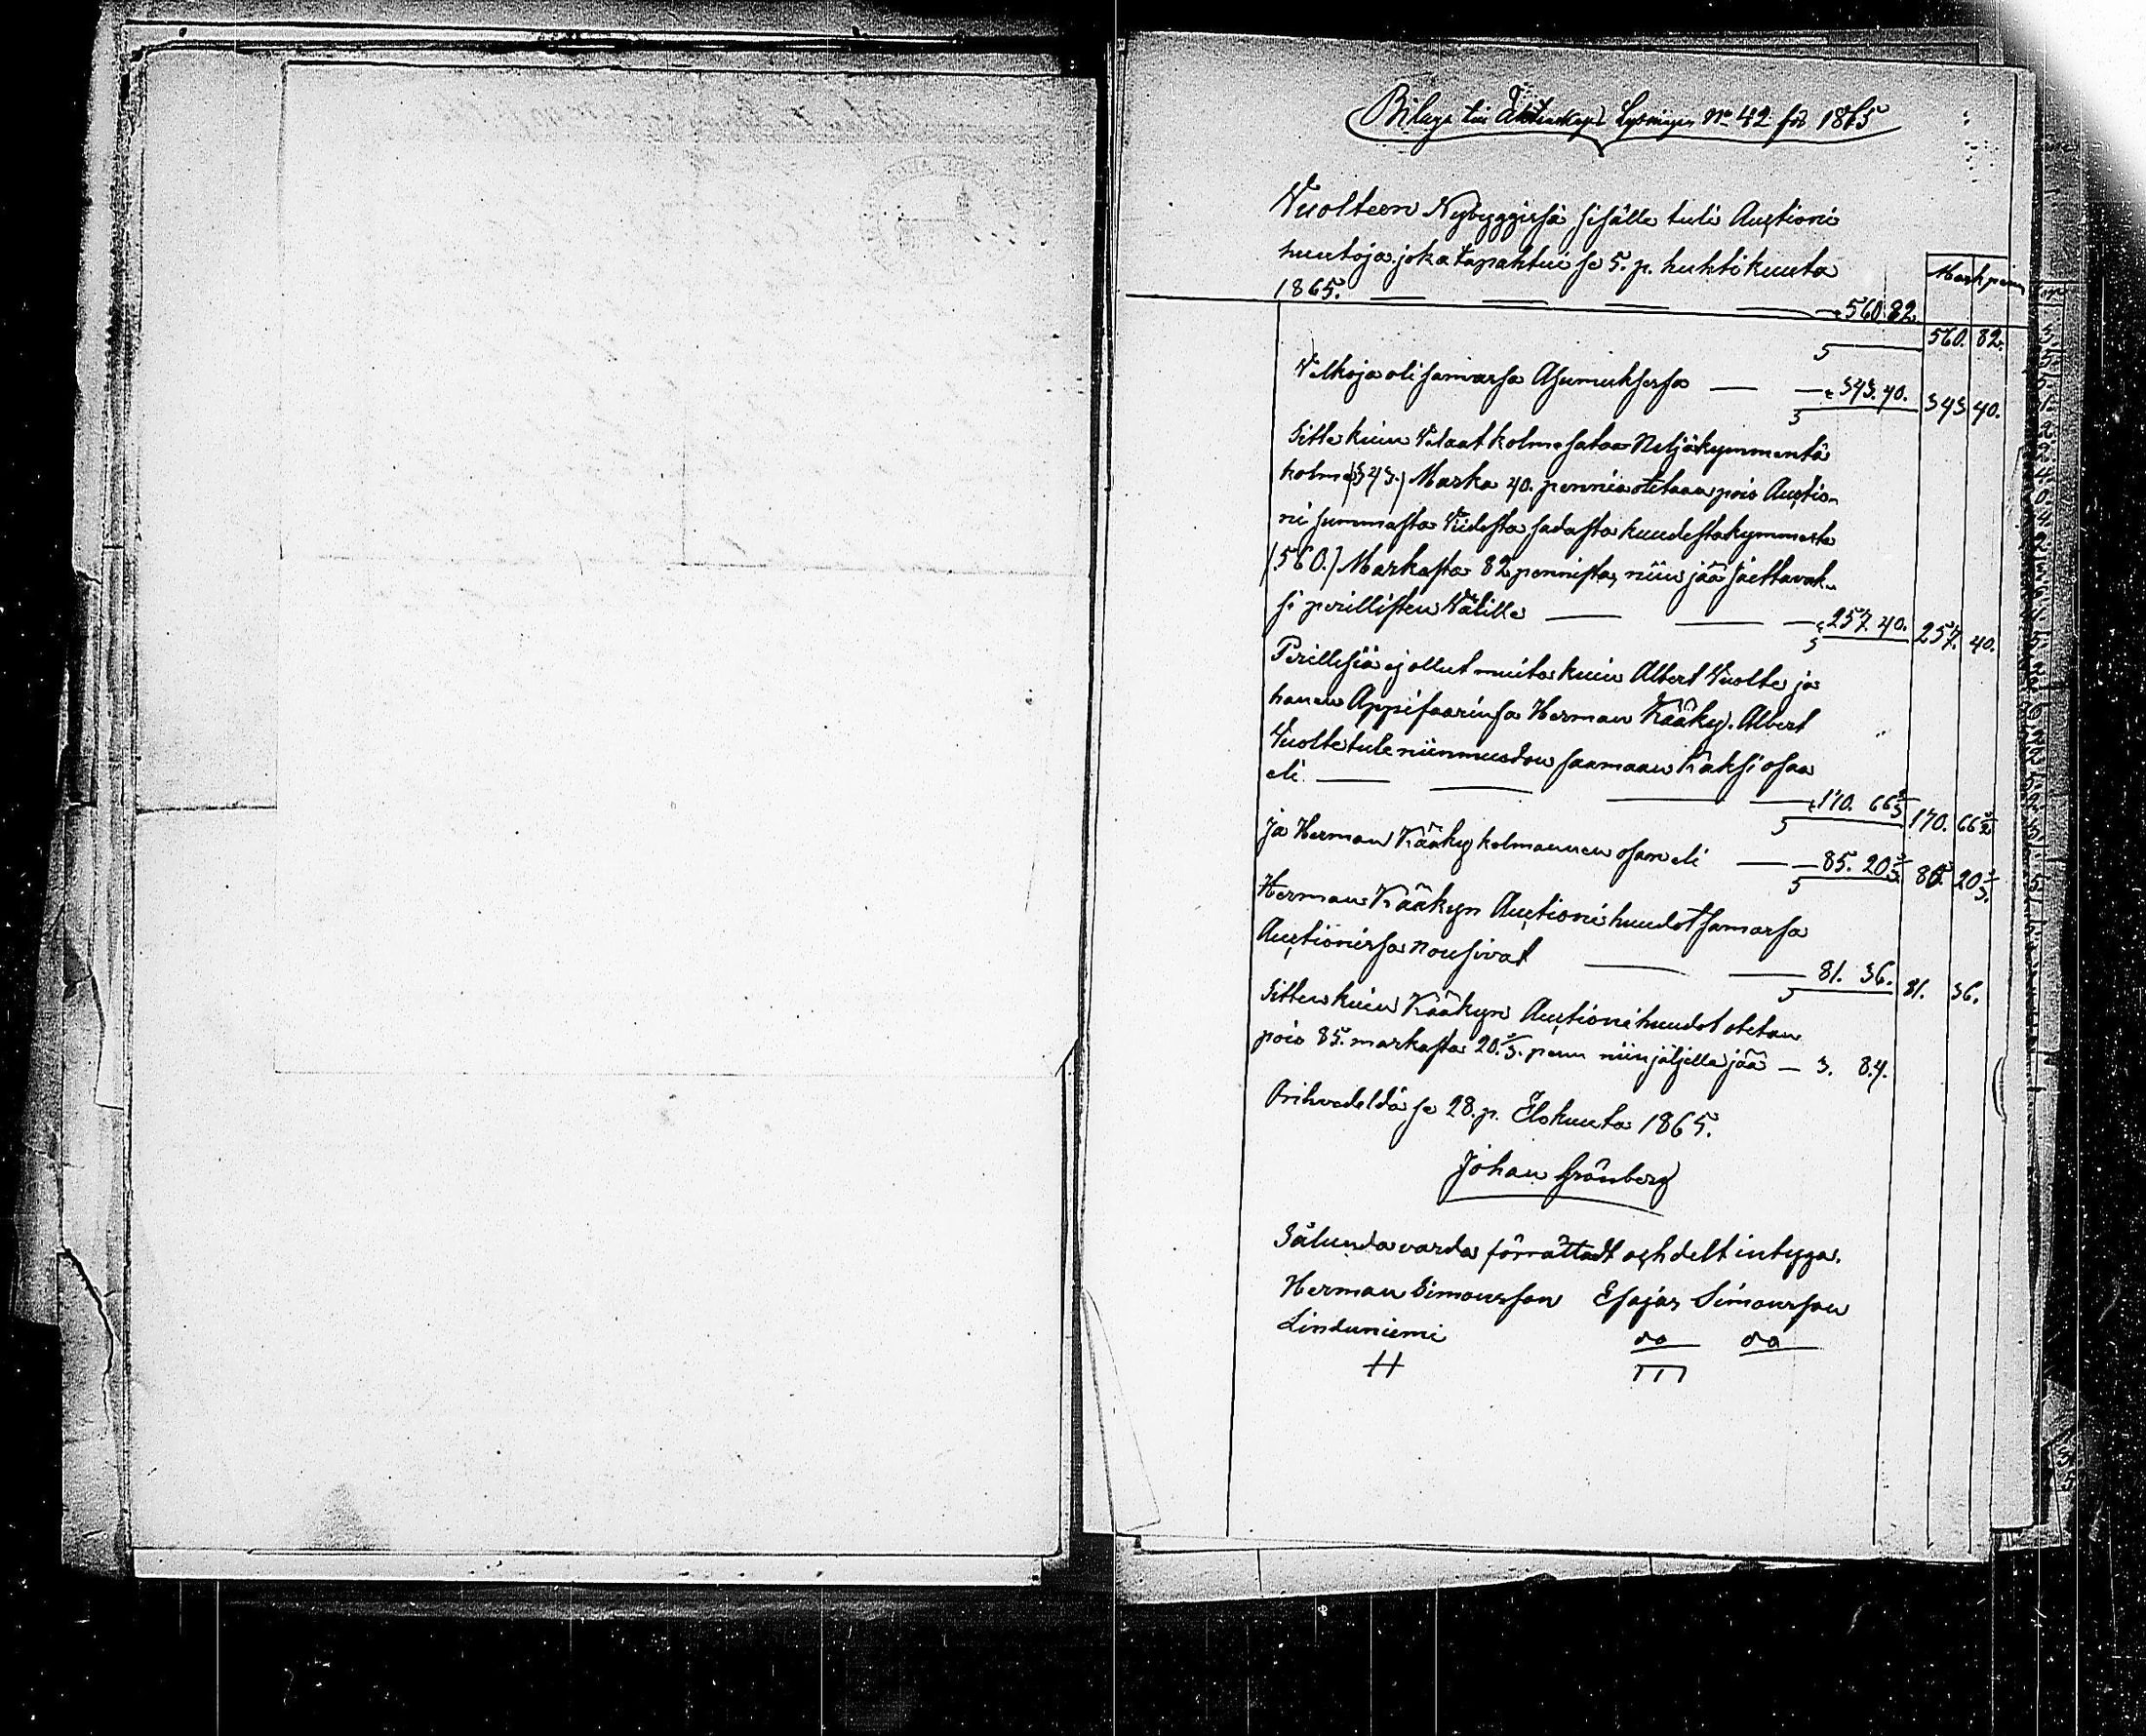 Bilaga till Äktenskaps Lysningen No 42 för 1865
Vuolteen Nybyggissä sisälle tuli Auctioni
huutoja joka tapahtui se 5. p. huhtikuuta
Mark penn
1865. — — — — 560. 82. 560. 82.
Velkoja oli samassa Asumuksessa — — 343. 40. 343 40.
Sitte kuin Velaat kolmesataa Neljäkymmentä
kolme (343.) Marka 40. penniä otetaan pois Auctio-
ni summasta Viidestä sadasta kuudestakymmestä
(560.) Markasta 82 pennistä, niin jää jaettavak-
si perillisten Välille — — — 257. 40. 257. 40.
Perillesiä ej ollut muita kuin Albert Vuolte ja
hänen Appisaarinsa Herman Kääky. Albert
Vuolte tule niinmuodon saamaan Kaksi osaa
eli — — — — 170. 66 2/3 170. 66 2/3
ja Herman Kääky kolmannen osan eli — — 85. 20 2/3. 85. 20 2/3.
Herman Kääkyn Auctioni huudot samassa
Auctionissa nousivat — — 81. 36. 81. 36.
Sitten kuin Kääkyn Auctioni huudot otetan
pois 85. markasta 20. 2/3. penn niin jäljelle jää — 3. 84.
se 28. p. Elokuuta 1865.
Johan Grönberg
Sålunda varda förrättadt och delt intyga.
Herman Simonsson Esajas Simonsson
Linduniemi do do